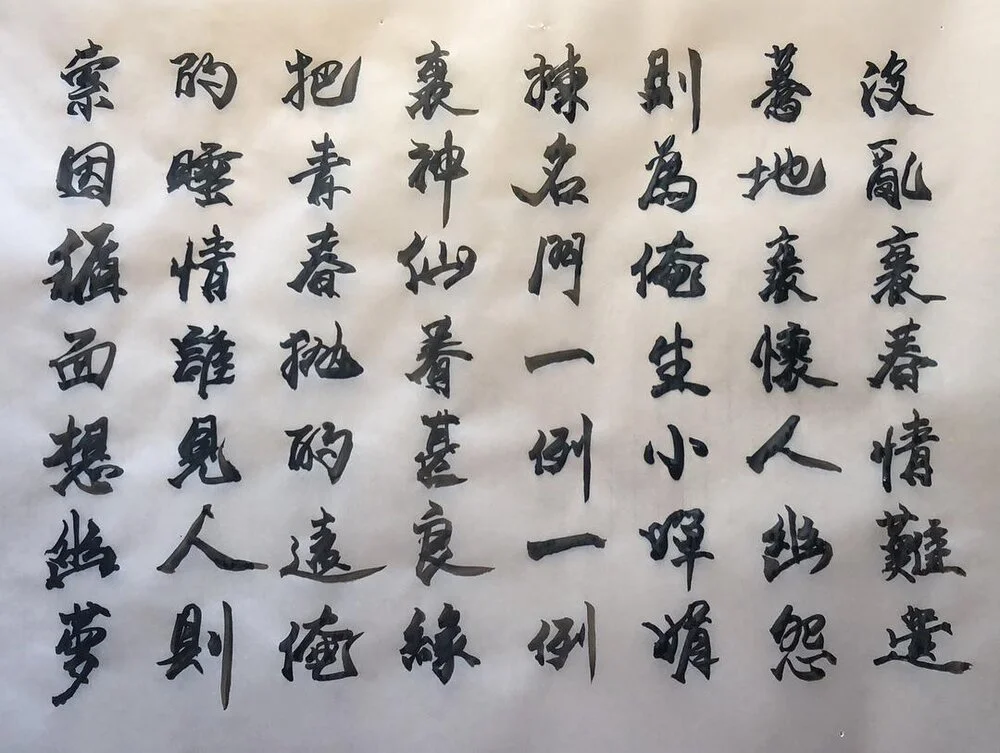 沒亂裏春情難遣
驀地裏懷人幽怨
則為俺生小嬋娟
揀名門一例一例
裏神仙眷甚良緣
把青春拋的遠俺
的睡情誰見人則
索因循面想幽夢